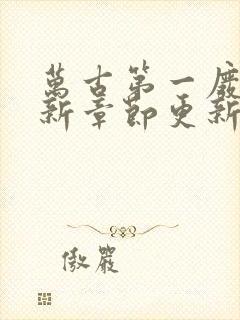 萬古第一
新章節更新
傲嚴